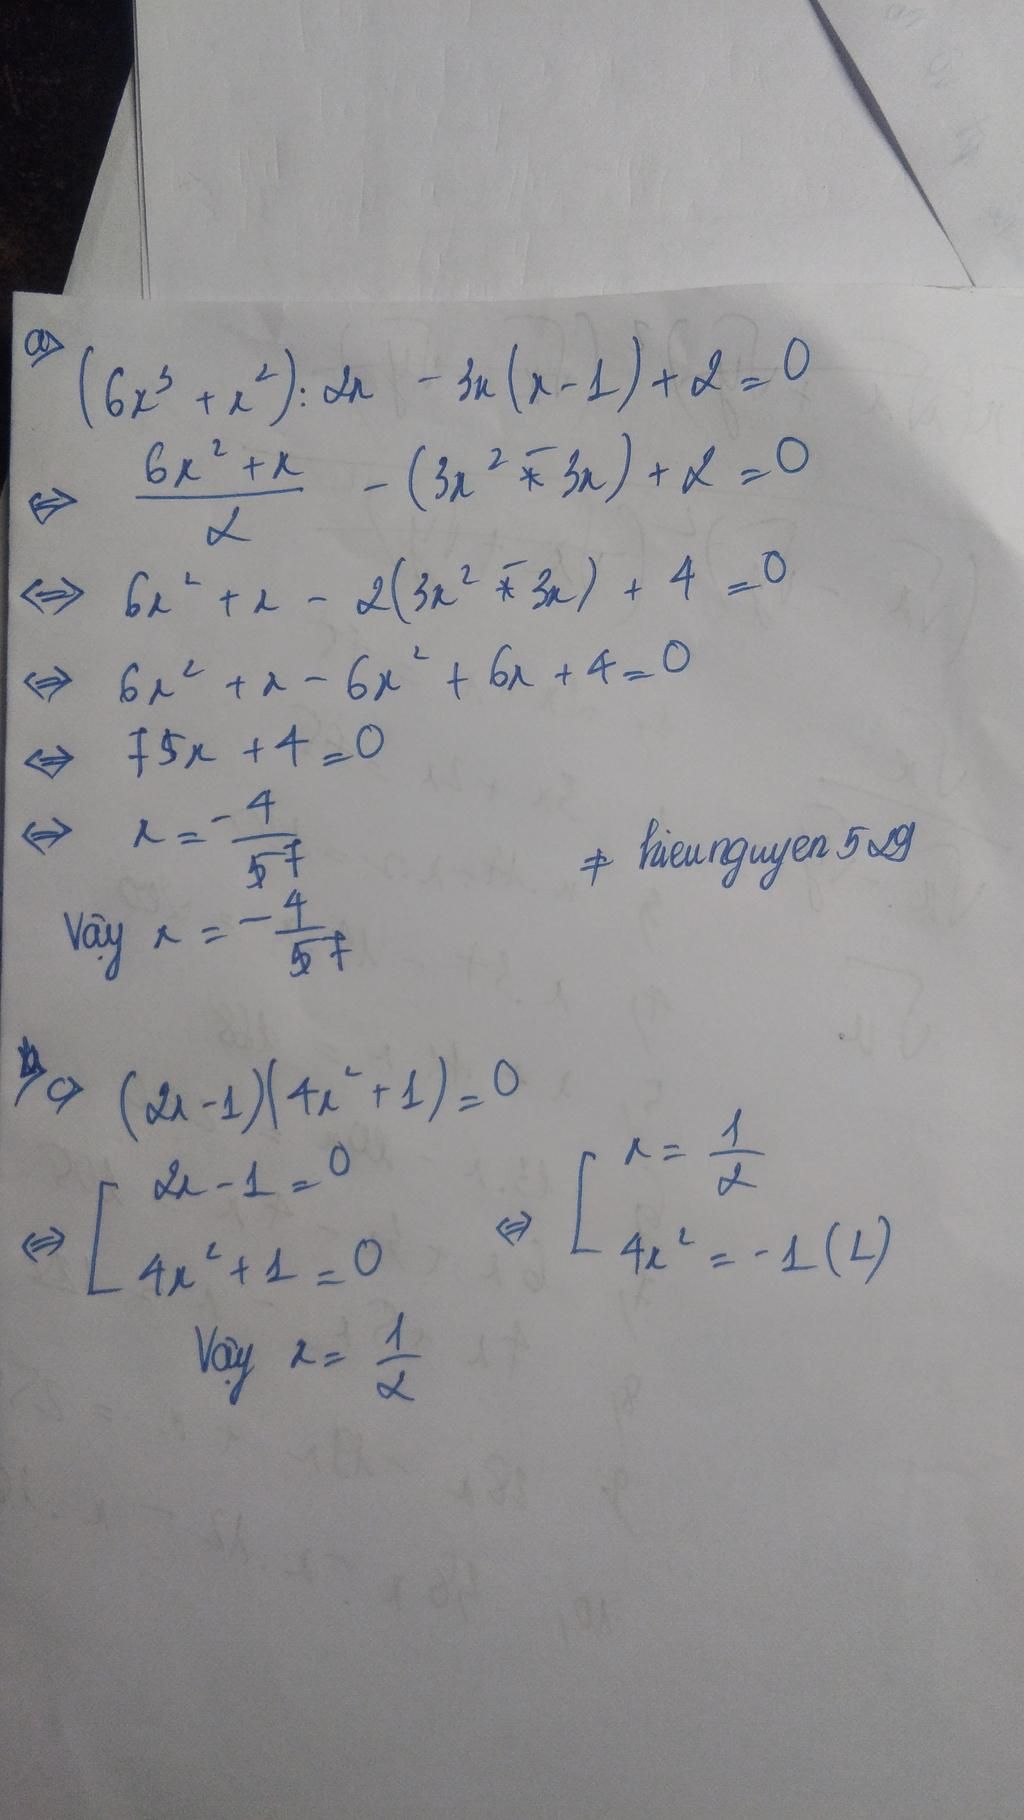 a) (6x³ + x²) : 2x - 3x(x - 1) + 2 = 0
⇔ (6x² + x)/2 - (3x² - 3x) + 2 = 0
⇔ 6x² + x - 2(3x² - 3x) + 4 = 0
⇔ 6x² + x - 6x² + 6x + 4 = 0
⇔ 7x + 4 = 0
⇔ x = -4/7
≠ hieunguyen529
Vậy x = -4/7
c) (2x - 1)(4x² + 1) = 0
⇔ [ 2x - 1 = 0 ⇔ [ x = 1/2
4x² + 1 = 0 4x² = -1 (L)
Vậy x = 1/2